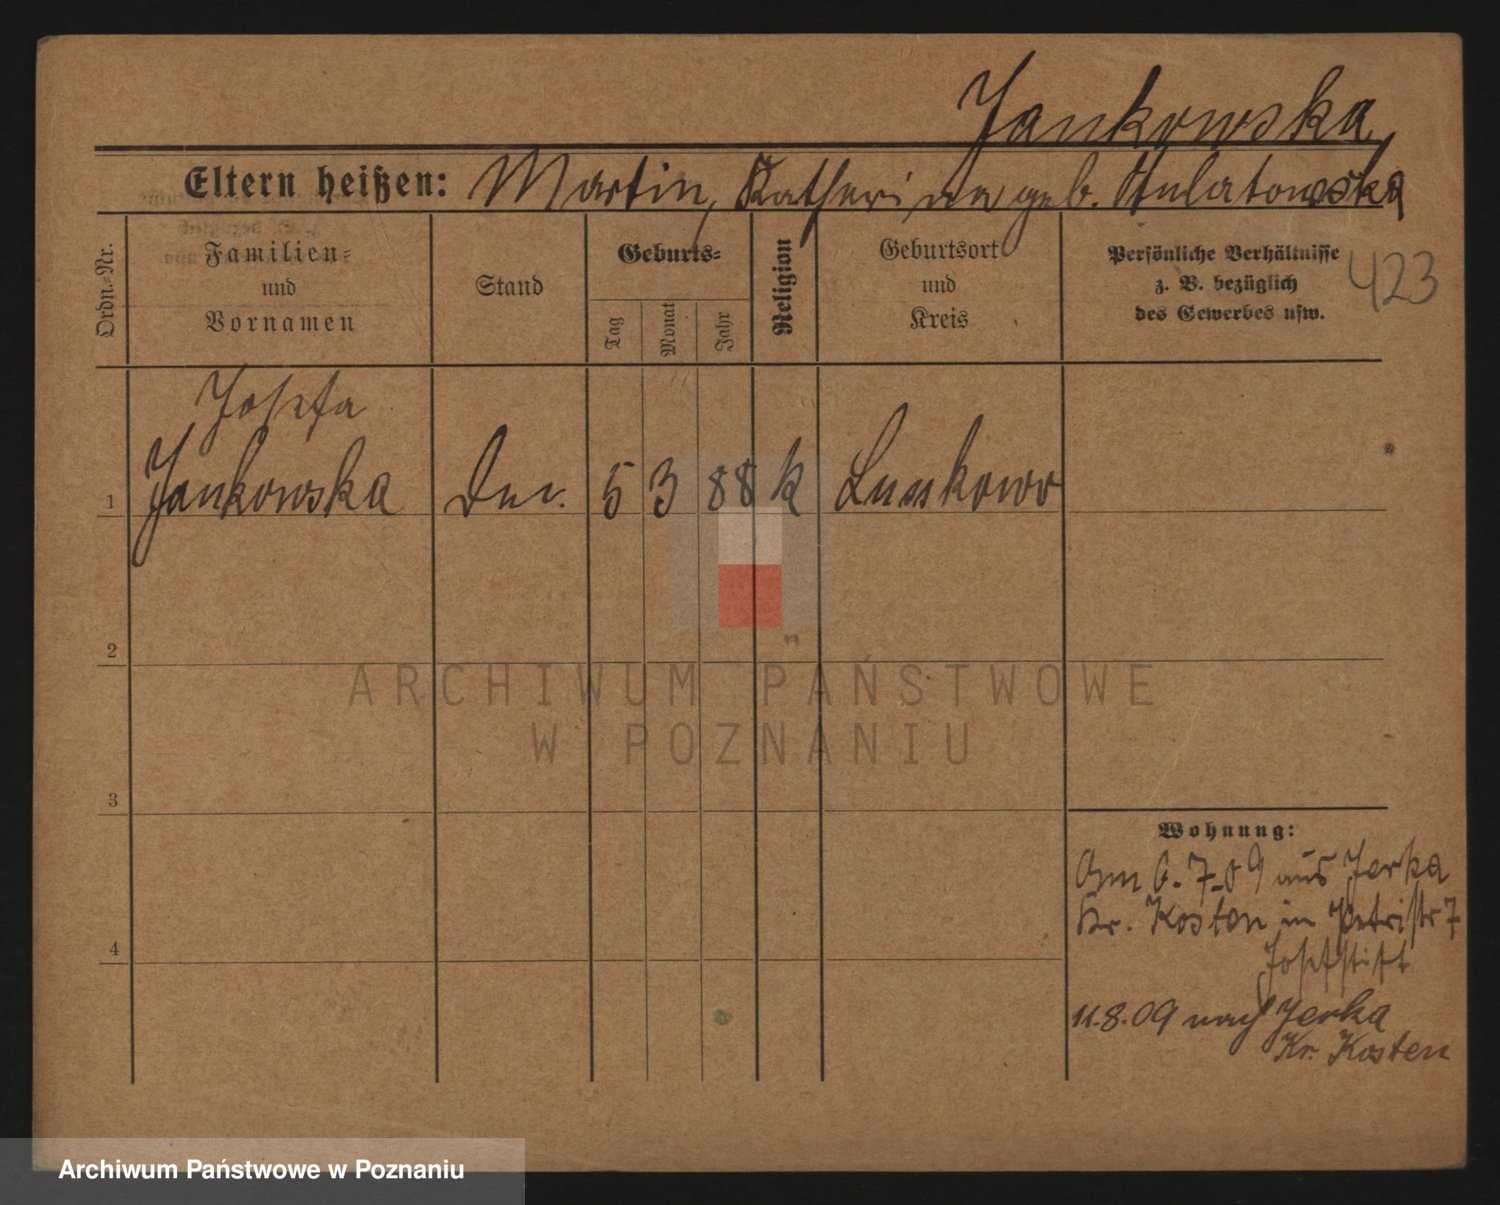 Jankowska
Eltern heißen: Martin, Katharina geb.
Ordn.-Nr.
Familien-
und
Vornamen
Stand
Geburts-
Tag
Monat
Jahr
Religion
Geburtsort
und
Kreis
Persönliche Verhältnisse
z. B. bezüglich
des Gewerbes usw.
423
Josefa
1 Jankowska 5 3 88 k
2
3
4
Wohnung:
Am 6.7.09 aus Jerka
Kr. Kosten in Petristr 7
Josefstift
11.8.09 nach Jerka
Kr. Kosten
ARCHIWUM PAŃSTWOWE
W POZNANIU
Archiwum Państwowe w Poznaniu